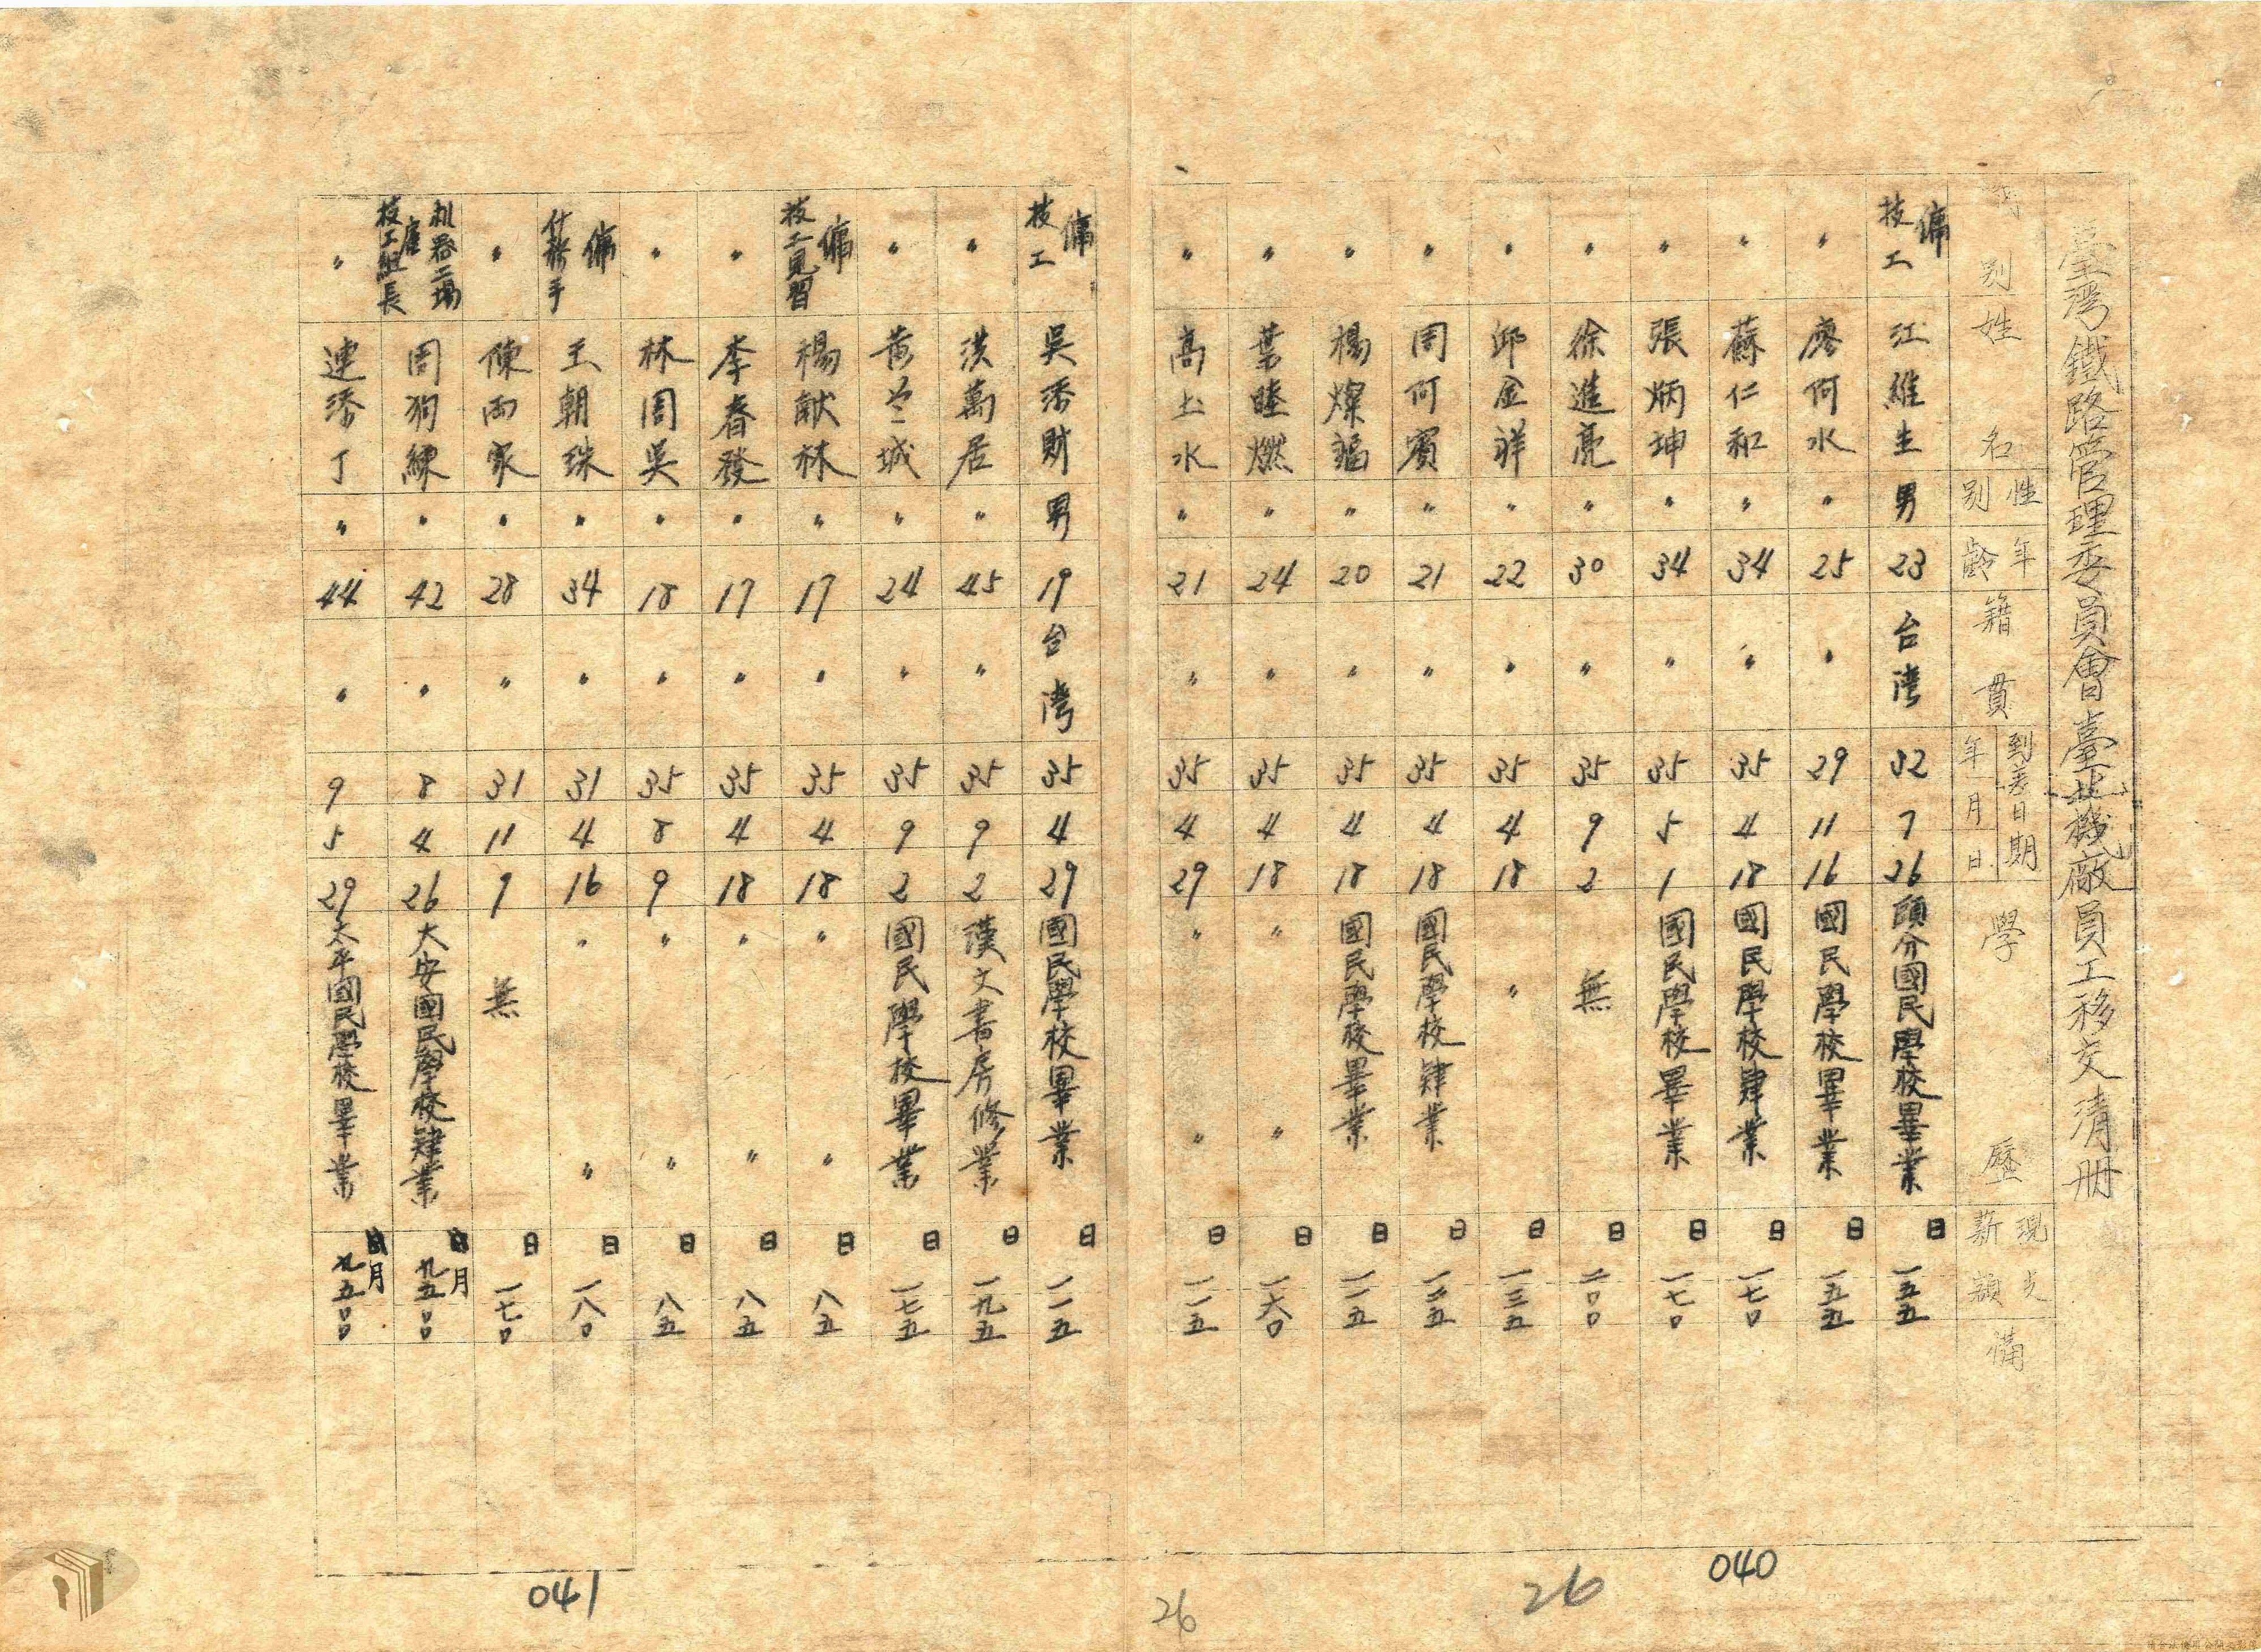 臺灣鐵路管理委員會臺北機廠員工移交清冊
別 姓名 性別 年齡 籍貫 到差日期 年月日 學歷 現支薪額 備
傭技工 江維生 男 23 台灣 32 7 26 頭分國民學校畢業 日 一五五
〃 廖何水 〃 25 〃 29 11 16 國民學校畢業 日 一五五
〃 蘇仁和 〃 34 〃 35 4 18 國民學校肄業 日 一七〇
〃 張炳坤 〃 34 〃 35 5 1 國民學校畢業 日 一七〇
〃 徐進亮 〃 30 〃 35 9 2 無 日 二〇〇
〃 邱金祥 〃 22 〃 35 4 18 〃 日 一三五
〃 周何賓 〃 21 〃 35 4 18 國民學校肄業 日 一一五
〃 楊燦 〃 20 〃 35 4 18 國民學校畢業 日 一一五
〃 葉睦燃 〃 24 〃 35 4 18 〃 〃 日 一六〇
〃 高上水 〃 21 〃 35 4 29 〃 〃 日 一一五
傭技工 吳添財 男 19 台灣 35 4 29 國民學校畢業 日 一一五
〃 洪萬居 〃 45 〃 35 9 2 漢文書房修業 日 一九五
〃 黃 城 〃 24 〃 35 9 2 國民學校畢業 日 一七五
傭技工見習 楊献林 〃 17 〃 35 4 18 〃 〃 日 八五
〃 李春發 〃 17 〃 35 4 18 〃 〃 日 八五
〃 林周吳 〃 18 〃 35 8 9 〃 〃 日 八五
傭什務手 王朝珠 〃 34 〃 31 4 16 〃 〃 日 一八〇
〃 陳両家 〃 28 〃 31 11 9 無 日 一七〇
机器工場技工組長 周狗練 〃 42 〃 8 4 26 大安國民學校肄業 月 九五〇〇
〃 連添丁 〃 44 〃 9 5 29 太平國民學校畢業 月 九五〇〇
040
26
26
041